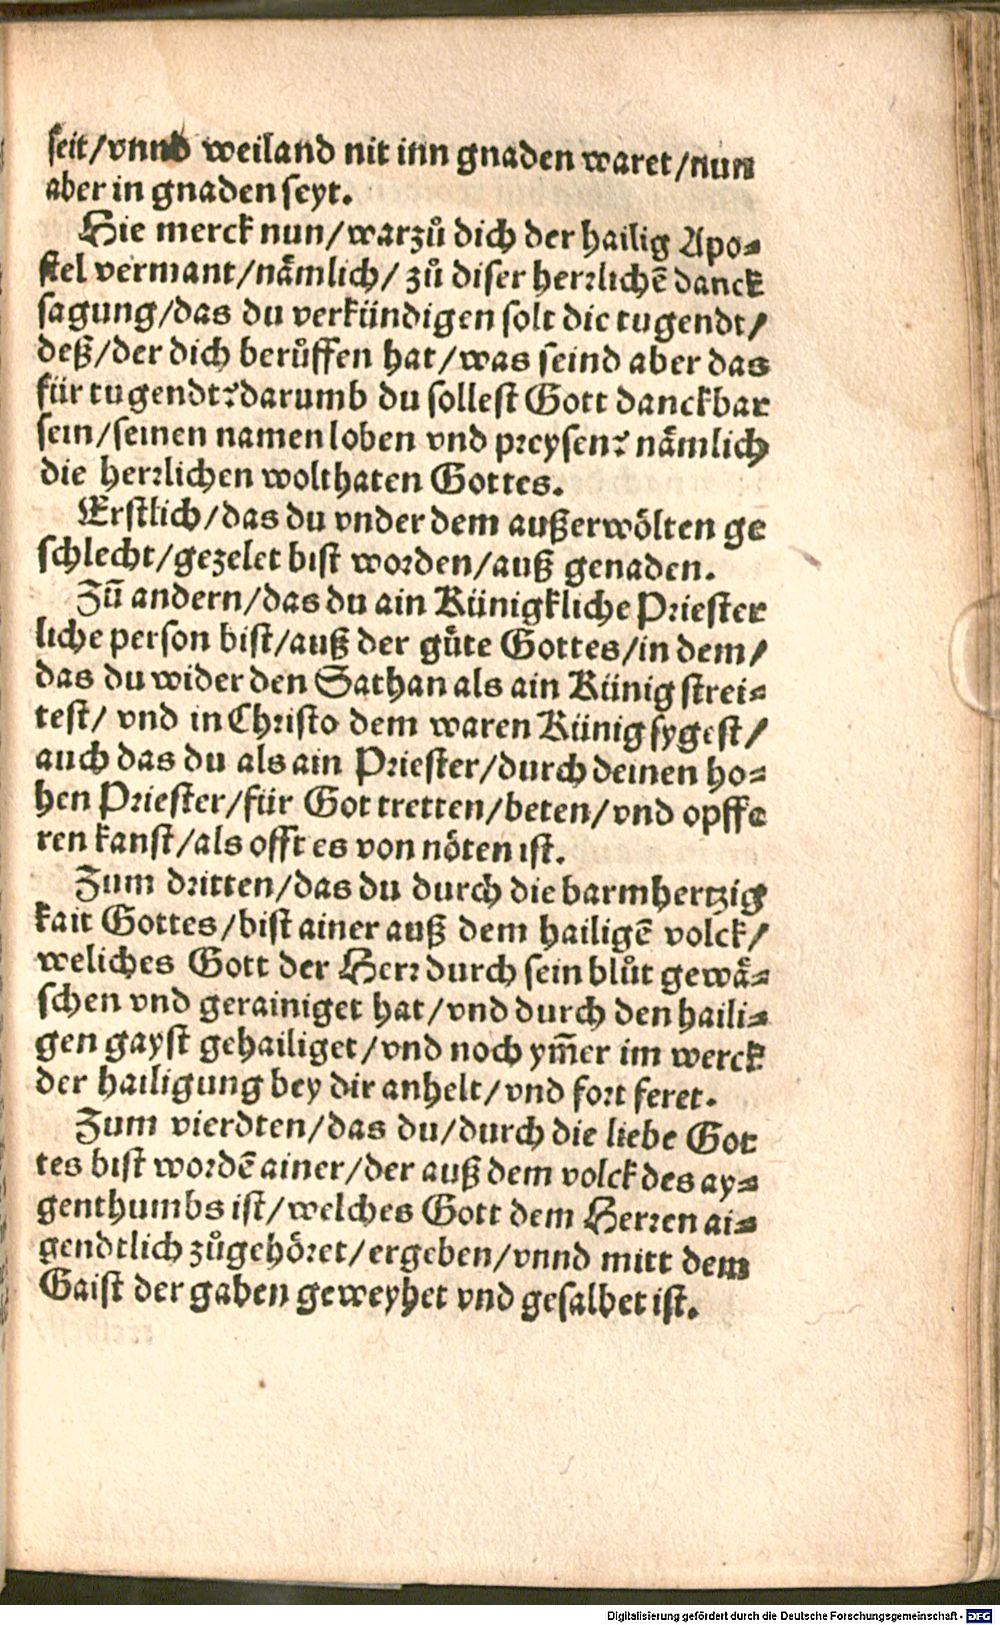 seit/vnnd weiland nit inn gnaden waret/nun
aber in gnaden seyt.
Hie merck nun/warzů dich der hailig Apo-
stel vermant/nämlich/ zů diser herrlichē danck
sagung/das du verkündigen solt die tugendt/
deß/der dich berůffen hat/was seind aber das
für tugendt?darumb du sollest Gott danckbar
sein/seinen namen loben vnd preysen? nämlich
die herrlichen wolthaten Gottes.
Erstlich/das du vnder dem außerwölten ge
schlecht/gezelet bist worden/auß genaden.
Zů andern/das du ain Künigkliche Priester
liche person bist/auß der güte Gottes/in dem/
das du wider den Sathan als ain Künig strei-
test/ vnd in Christo dem waren Künig sygest/
auch das du als ain Priester/durch deinen ho-
hen Priester/für Got tretten/beten/vnd opffe
ren kanst/als offt es von nöten ist.
Zum dritten/das du durch die barmhertzig
kait Gottes/bist ainer auß dem hailigē volck/
weliches Gott der Herr durch sein blůt gewä-
schen vnd gerainiget hat/vnd durch den haili-
gen gayst gehailiget/vnd noch ym̄er im werck
der hailigung bey dir anhelt/vnd fort feret.
Zum vierdten/das du/durch die liebe Got
tes bist wordē ainer/der auß dem volck des ay-
genthumbs ist/welches Gott dem Herren ai-
gendtlich zůgehöret/ergeben/vnnd mitt dem
Gaist der gaben geweyhet vnd gesalbet ist.
Digitalisierung gefördert durch die Deutsche Forschungsgemeinschaft - DFG